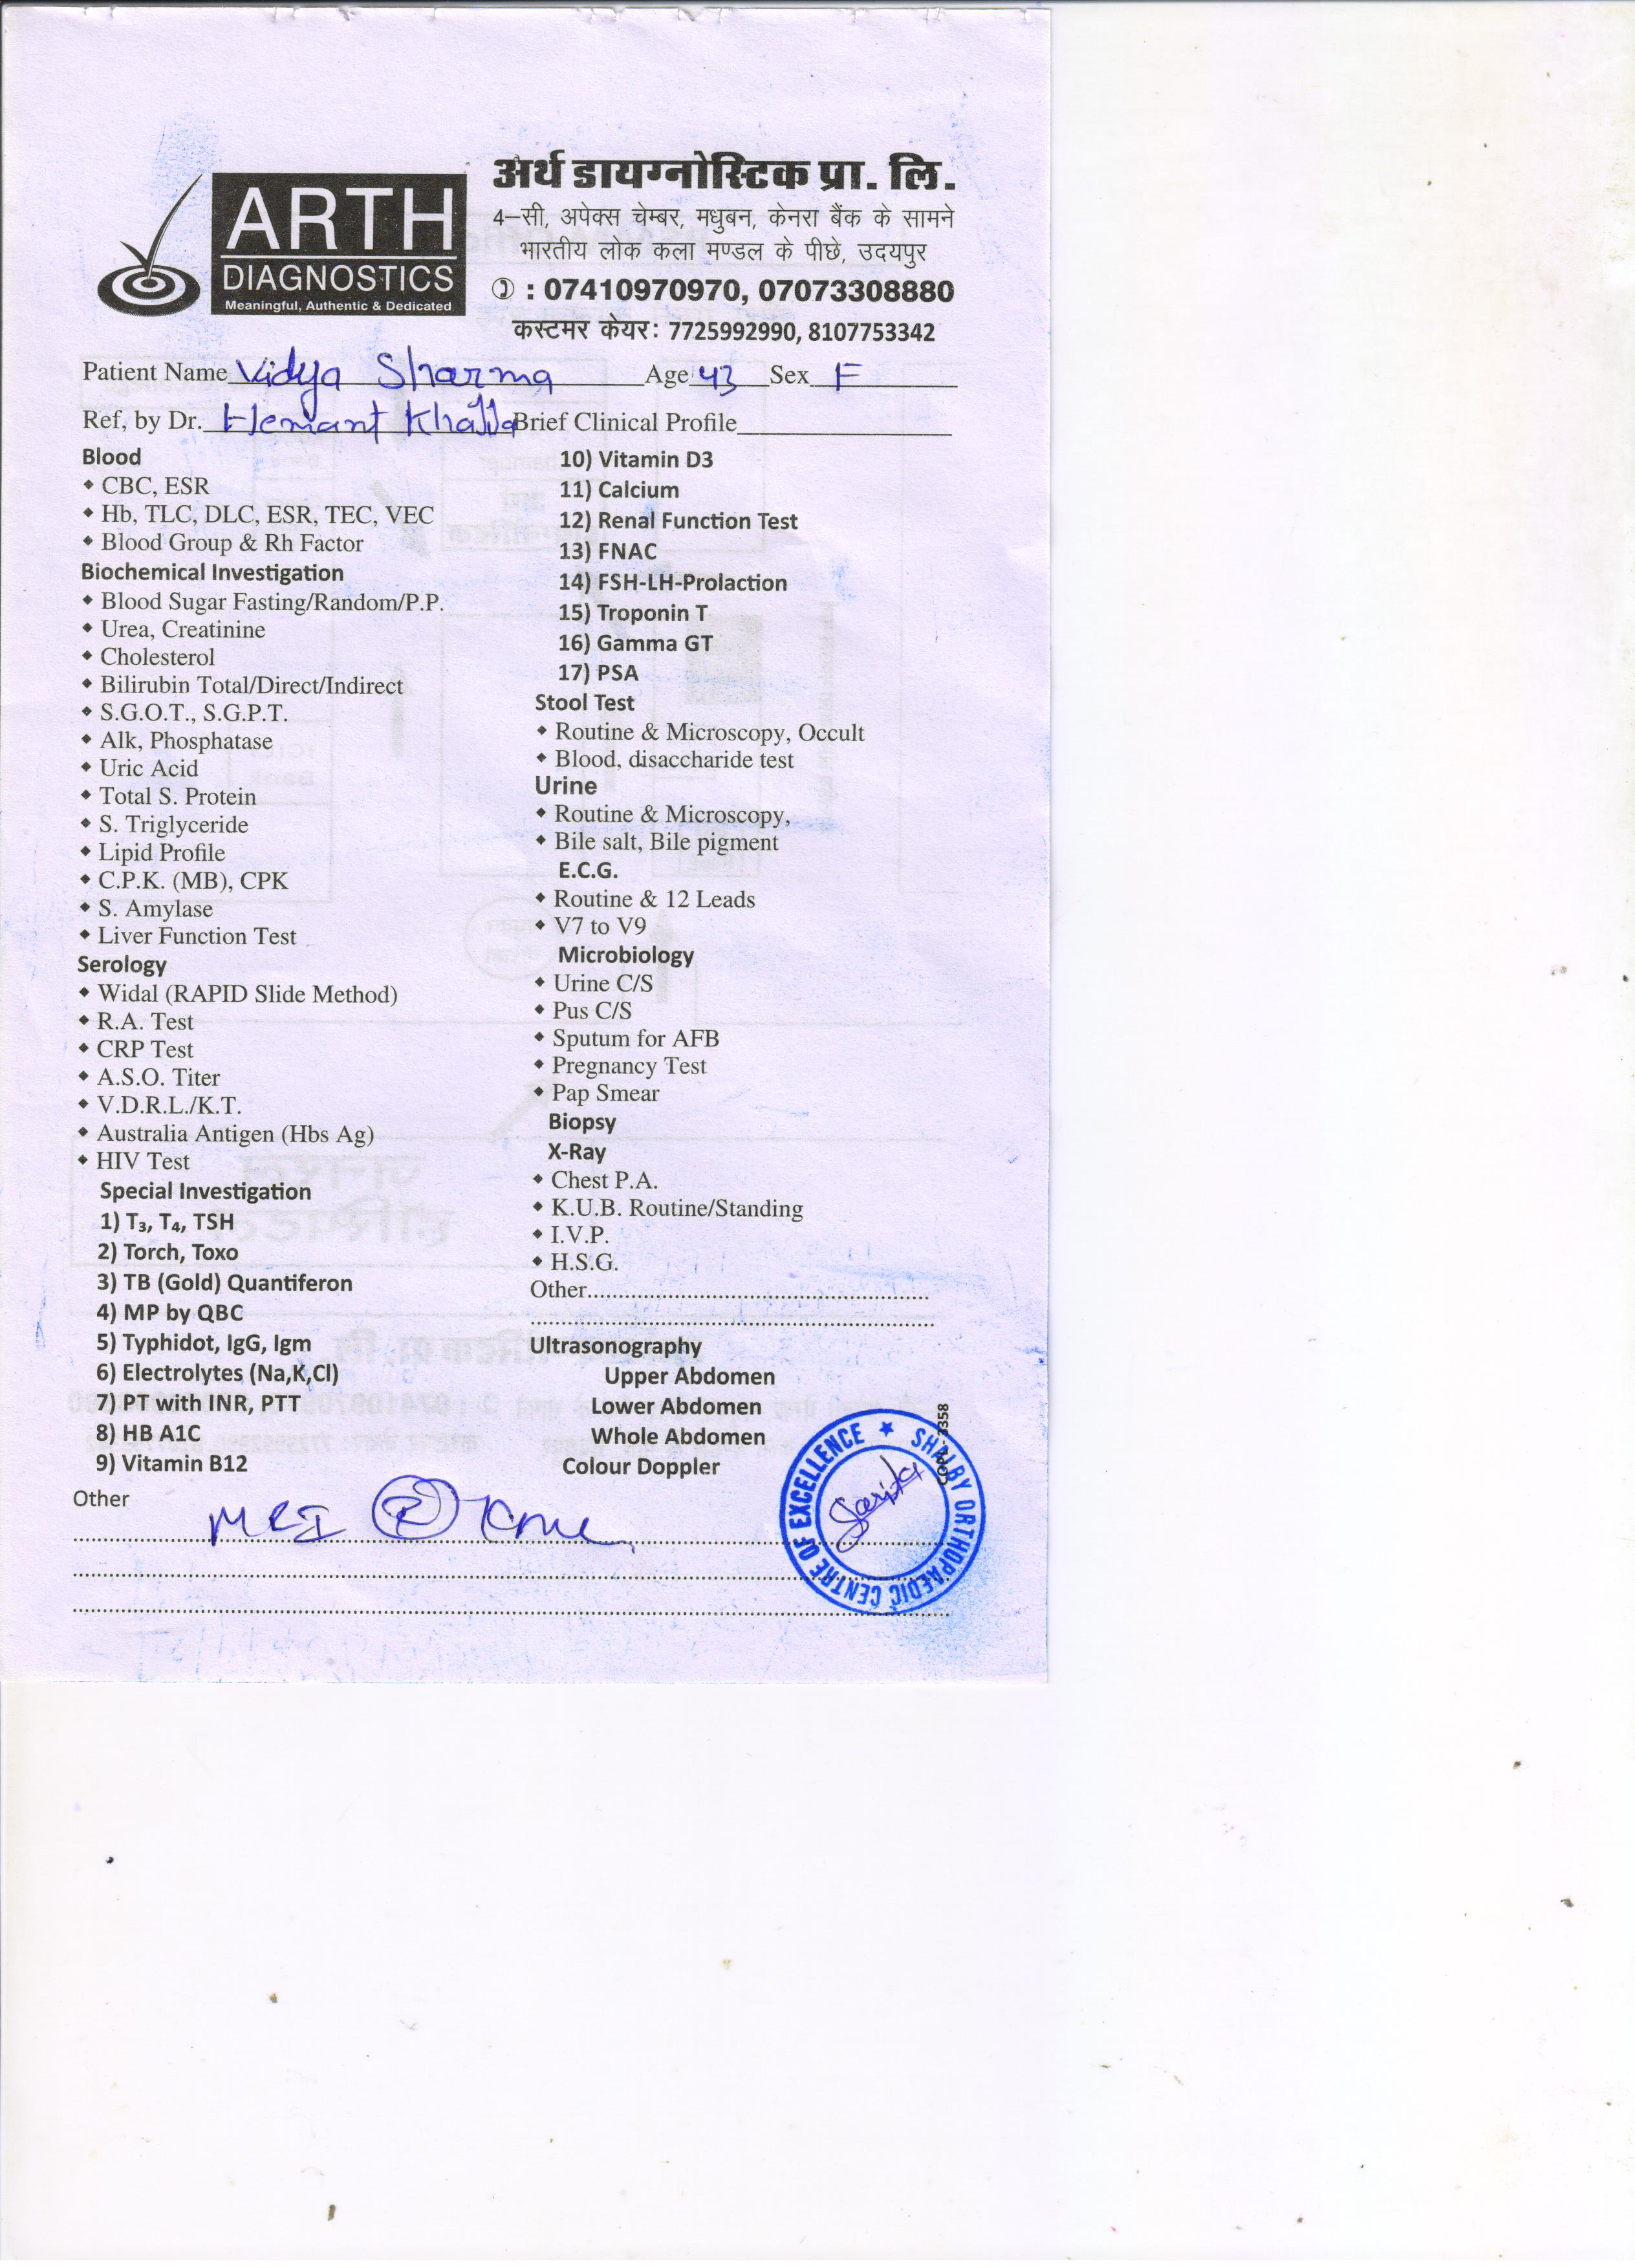 ARTH
DIAGNOSTICS
Meaningful, Authentic & Dedicated
अर्थ डायग्नोस्टिक प्रा. लि.
4–सी, अपेक्स चेम्बर, मधुबन, केनरा बैंक के सामने
भारतीय लोक कला मण्डल के पीछे, उदयपुर
✆ : 07410970970, 07073308880
कस्टमर केयर: 7725992990, 8107753342
Patient Name Vidya Sharma Age 43 Sex F
Ref, by Dr. Hemant Brief Clinical Profile
Blood
CBC, ESR
Hb, TLC, DLC, ESR, TEC, VEC
Blood Group & Rh Factor
Biochemical Investigation
Blood Sugar Fasting/Random/P.P.
Urea, Creatinine
Cholesterol
Bilirubin Total/Direct/Indirect
S.G.O.T., S.G.P.T.
Alk, Phosphatase
Uric Acid
Total S. Protein
S. Triglyceride
Lipid Profile
C.P.K. (MB), CPK
S. Amylase
Liver Function Test
Serology
Widal (RAPID Slide Method)
R.A. Test
CRP Test
A.S.O. Titer
V.D.R.L./K.T.
Australia Antigen (Hbs Ag)
HIV Test
Special Investigation
1) T₃, T₄, TSH
2) Torch, Toxo
3) TB (Gold) Quantiferon
4) MP by QBC
5) Typhidot, IgG, Igm
6) Electrolytes (Na,K,Cl)
7) PT with INR, PTT
8) HB A1C
9) Vitamin B12
10) Vitamin D3
11) Calcium
12) Renal Function Test
13) FNAC
14) FSH-LH-Prolaction
15) Troponin T
16) Gamma GT
17) PSA
Stool Test
Routine & Microscopy, Occult
Blood, disaccharide test
Urine
Routine & Microscopy,
Bile salt, Bile pigment
E.C.G.
Routine & 12 Leads
V7 to V9
Microbiology
Urine C/S
Pus C/S
Sputum for AFB
Pregnancy Test
Pap Smear
Biopsy
X-Ray
Chest P.A.
K.U.B. Routine/Standing
I.V.P.
H.S.G.
Other
Ultrasonography
Upper Abdomen
Lower Abdomen
Whole Abdomen
Colour Doppler
Other
MRI (R) Knee
SHALBY ORTHOPAEDIC CENTRE OF EXCELLENCE
Sarita